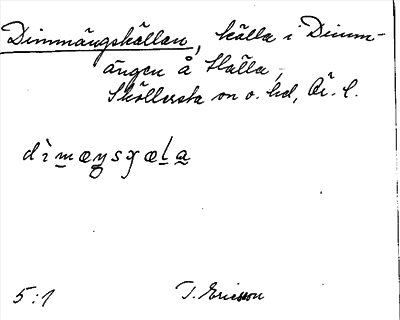 Dimmängskällan, källa i Dimm-
ängen å Hälla,
Sköllersta sn o. hd, Ör. l.
dìmæŋsɣæla
5:1 T. Ericsson